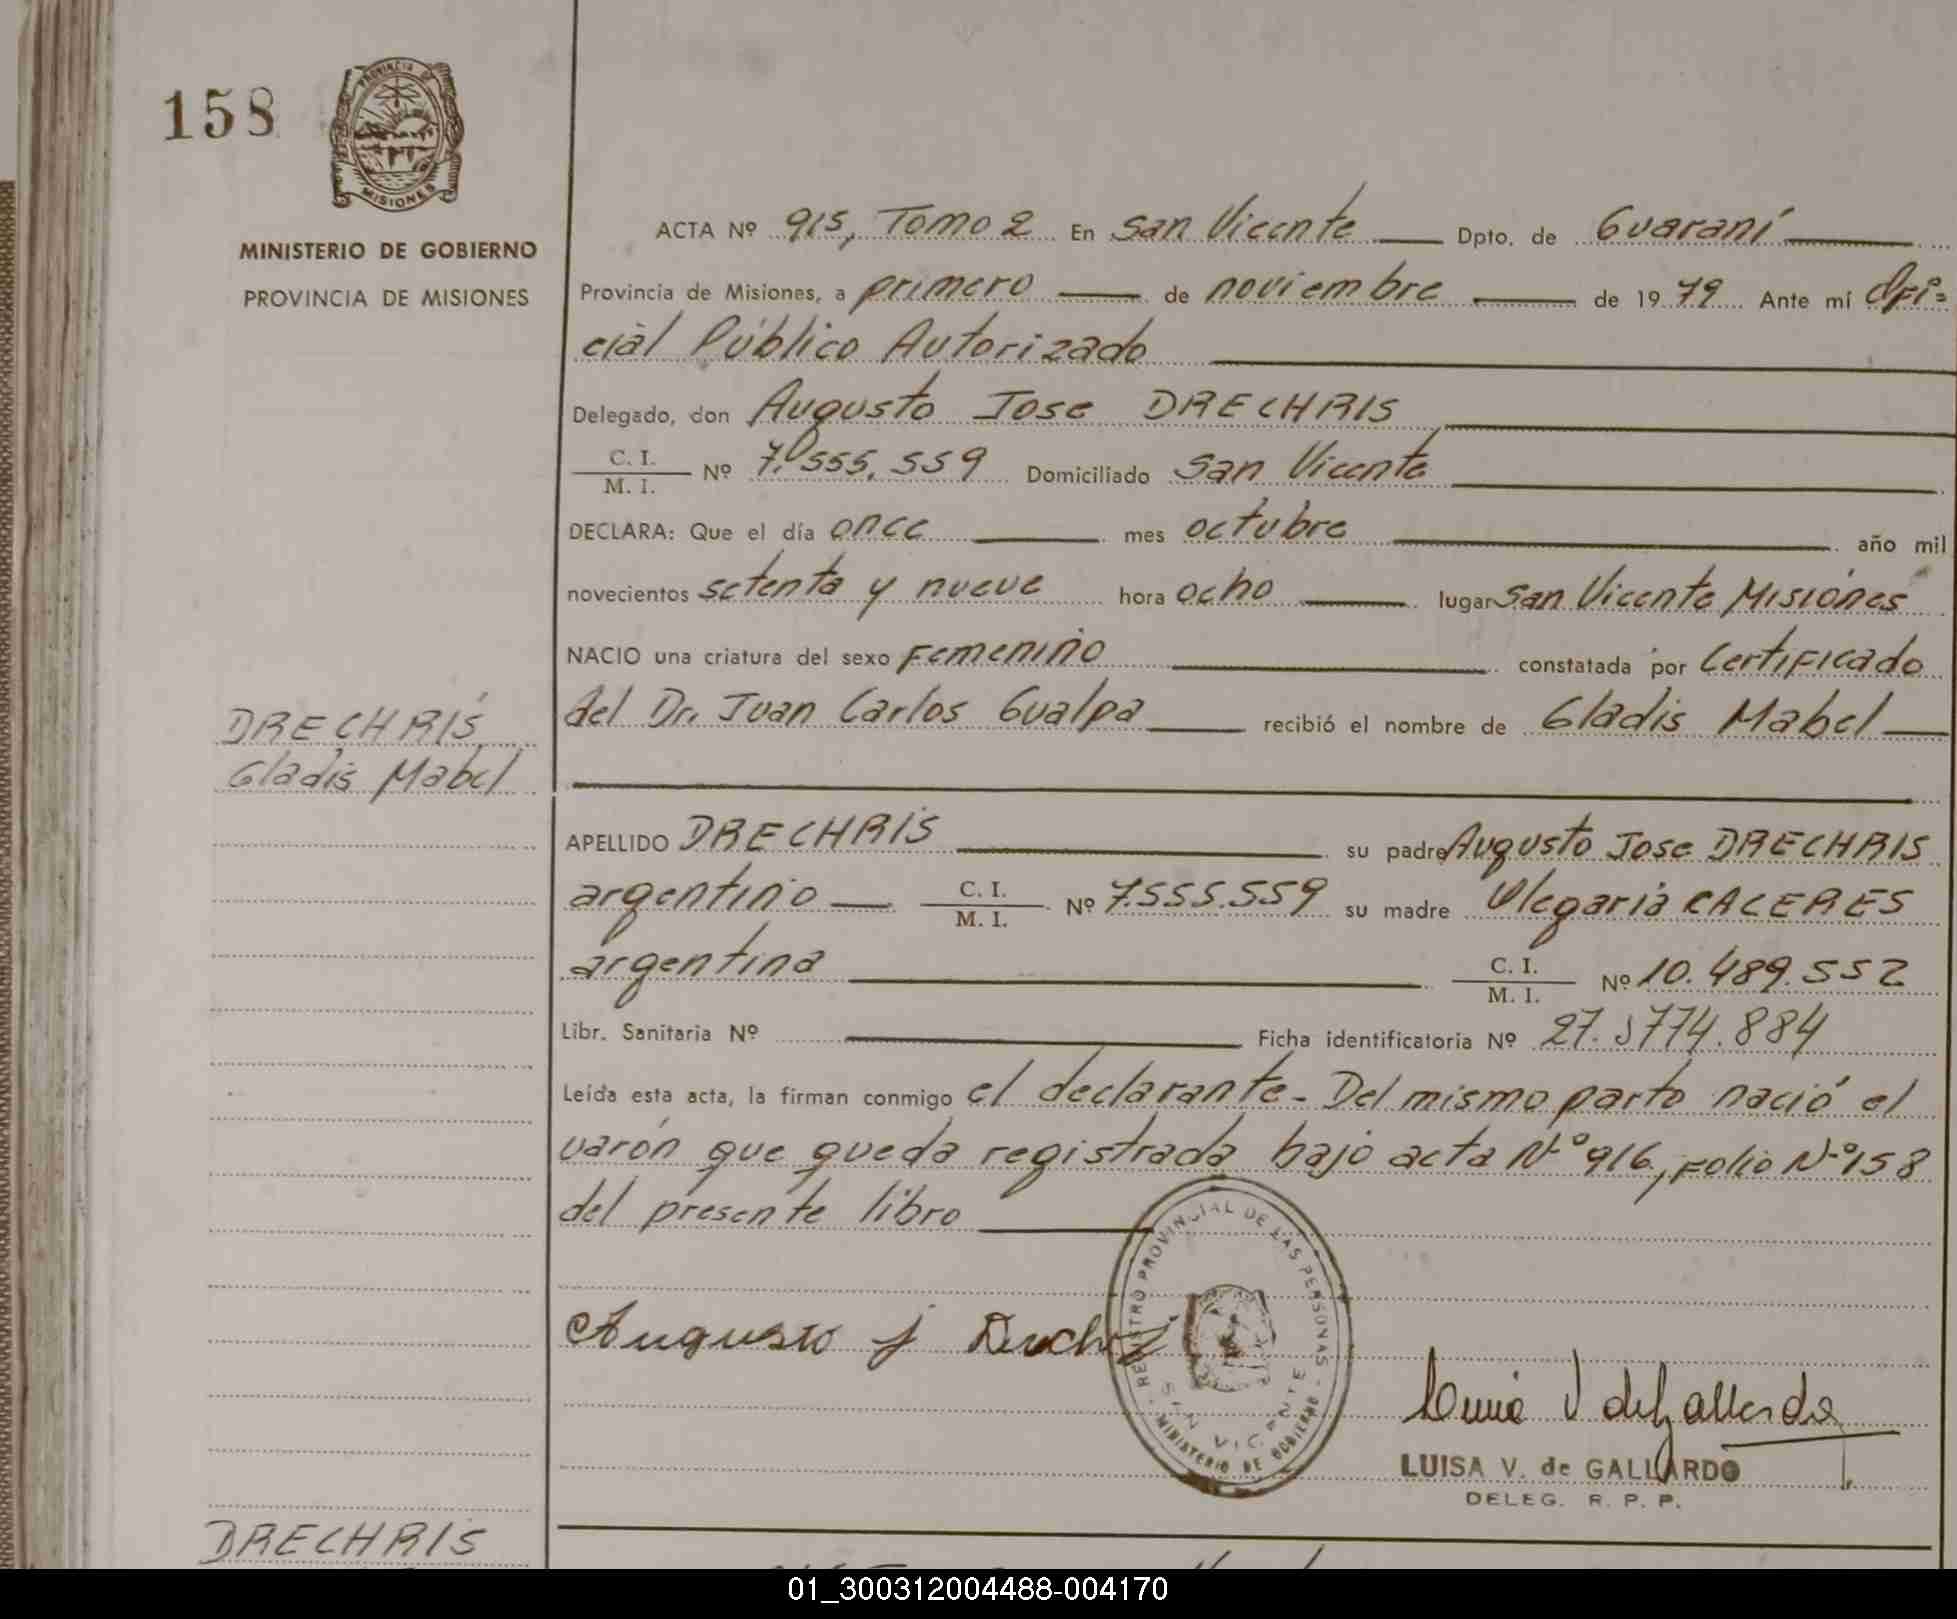 158
PROVINCIA DE
MISIONES
MINISTERIO DE GOBIERNO
PROVINCIA DE MISIONES
ACTA Nº 915, Tomo 2 En San Vicente Dpto. de Guaraní
Provincia de Misiones, a primero de noviembre de 1979 Ante mí Ofi=
cial Público Autorizado
Delegado, don Augusto Jose DRECHRIS
C. I.
M. I. Nº 7.555.559 Domiciliado San Vicente
DECLARA: Que el día once mes octubre año mil
novecientos setenta y nueve hora ocho lugar San Vicente Misiones
NACIO una criatura del sexo Femenino constatada por Certificado
del Dr. Juan Carlos Gualpa recibió el nombre de Gladis Mabel
DRECHRIS
Gladis Mabel
APELLIDO DRECHRIS su padre Augusto Jose DRECHRIS
argentino C. I.
M. I. Nº 7.555.559 su madre Olegaria CACERES
argentina C. I.
M. I. Nº 10.489.552
Libr. Sanitaria Nº Ficha identificatoria Nº 27. 774.884
Leída esta acta, la firman conmigo el declarante - Del mismo parto nació el
varón que queda registrada bajo acta Nº 916, Folio Nº 158
del presente libro
Augusto J
REGISTRO PROVINCIAL DE LAS PERSONAS - MINISTERIO DE GOBIERNO -
SAN VICENTE
Luisa V de Gallardo
LUISA V. de GALLARDO
DELEG. R. P. P.
DRECHRIS
01_300312004488-004170